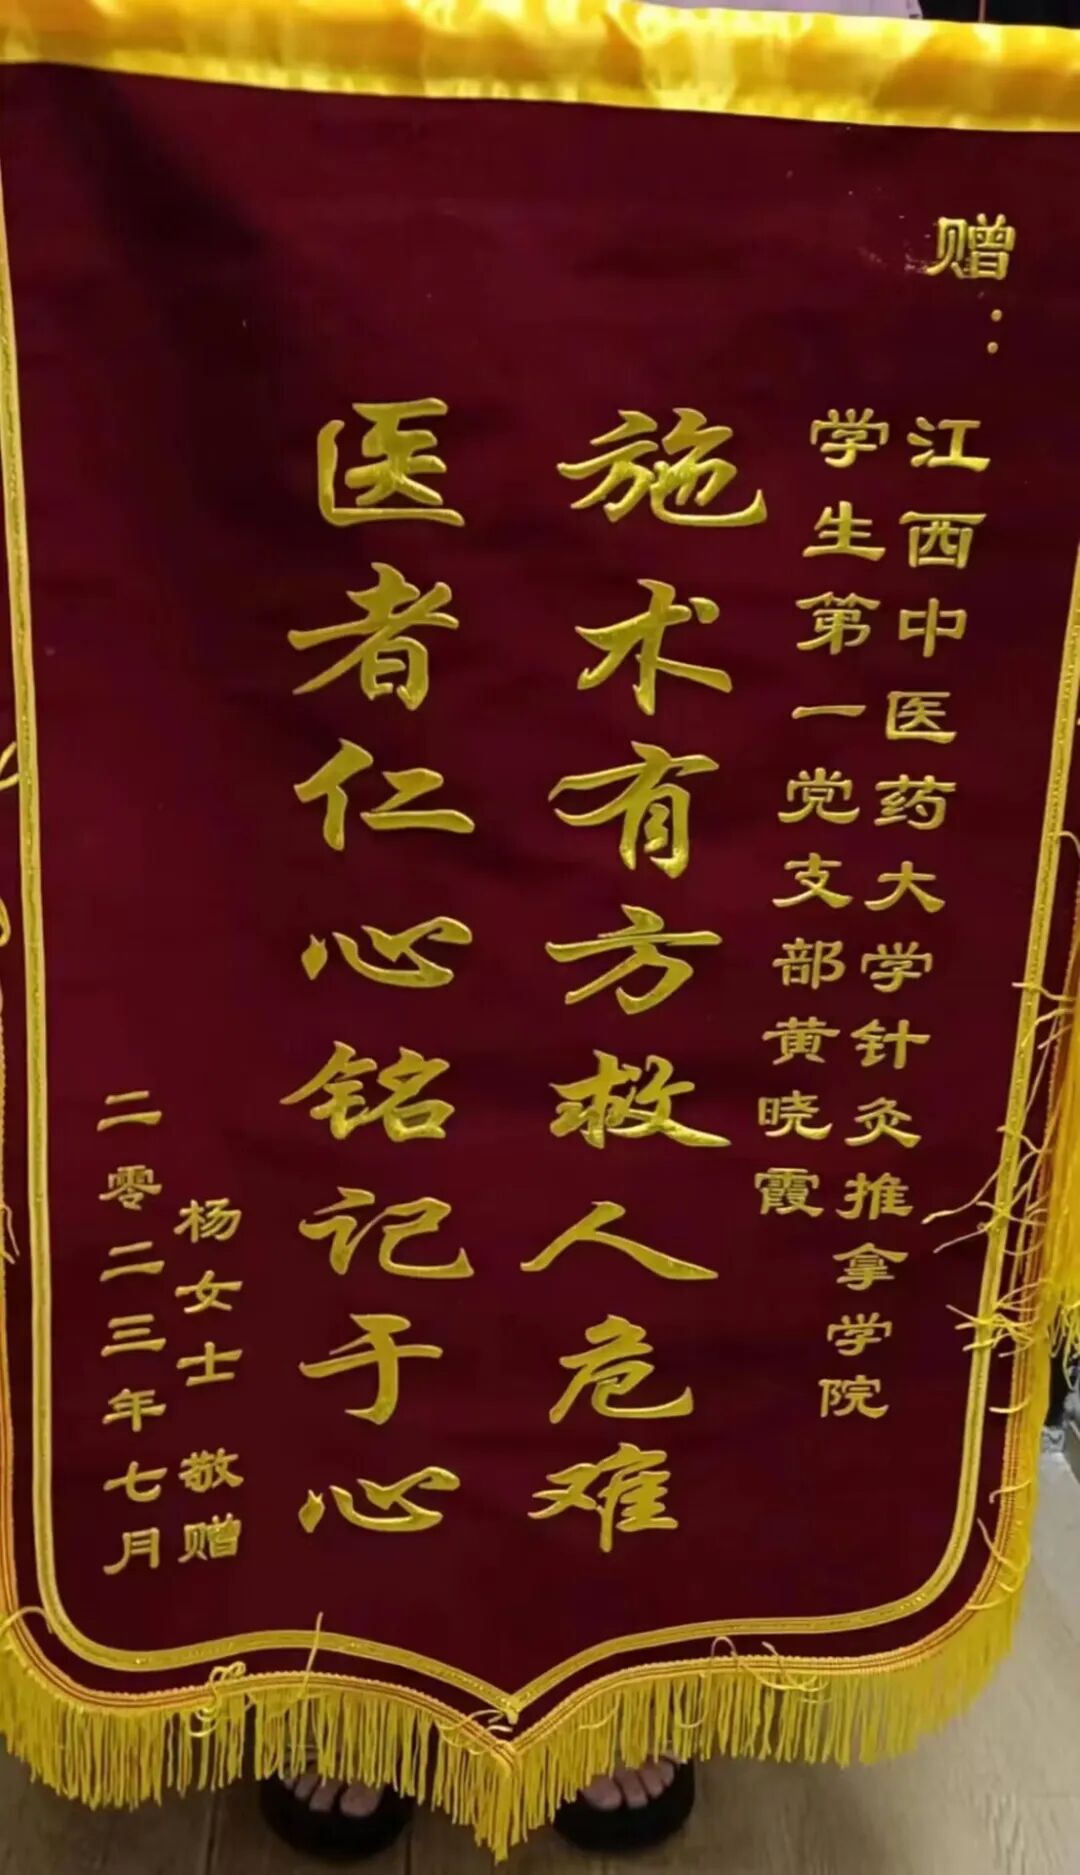 赠：
江西中医药大学针灸推拿学院
学生第一党支部黄晓霞
施术有方救人危难
医者仁心铭记于心
杨女士 敬赠
二零二三年七月